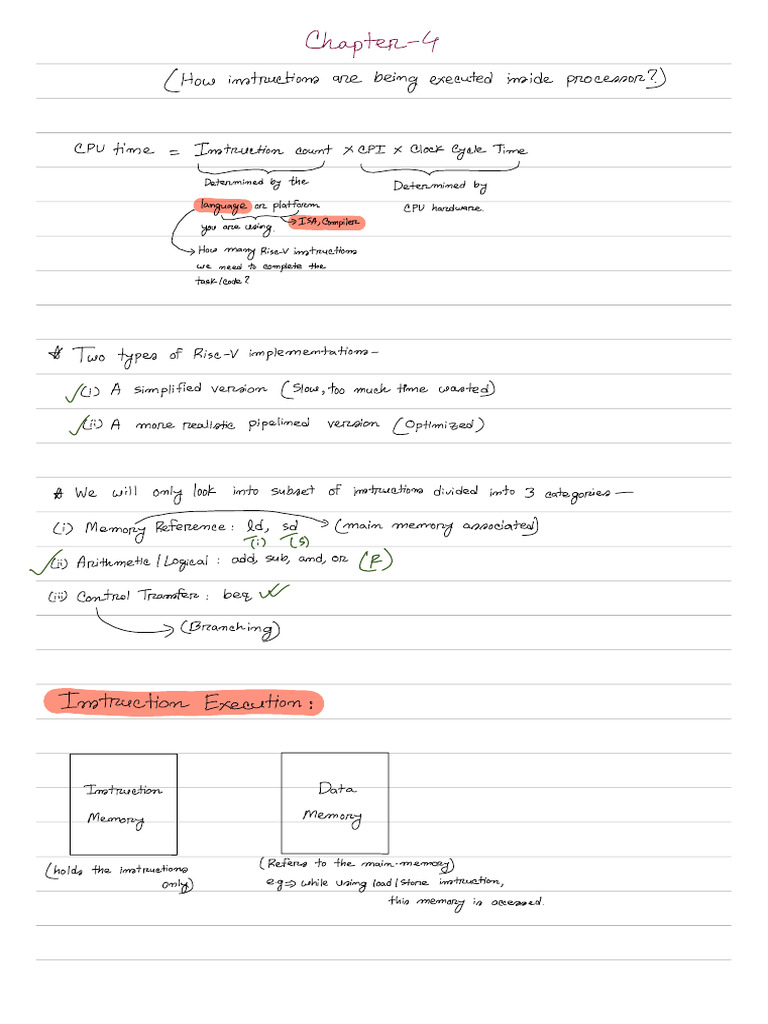 Chapter-4
(How instructions are being executed inside processor?)
CPU time = Instruction count × CPI × Clock Cycle Time
Determined by the
language or platform
you are using.
→ ISA, Compiler
Determined by
CPU hardware.
→ How many Risc-V instructions
we need to complete the
task/code?
* Two types of Risc-V implementations-
✓(i) A simplified version (Slow, too much time wasted)
✓(ii) A more realistic pipelined version (Optimized)
* We will only look into subset of instructions divided into 3 categories —
(i) Memory Reference: ld, sd → (main memory associated)
(i) (S)
✓(ii) Arithmetic/Logical: add, sub, and, or (R)
(iii) Control Transfer: beq ✓✓
→ (Branching)
Instruction Execution:
Instruction
Memory
(holds the instructions
only)
Data
Memory
(Refers to the main-memory)
eg ⇒ while using load/store instruction,
this memory is accessed.